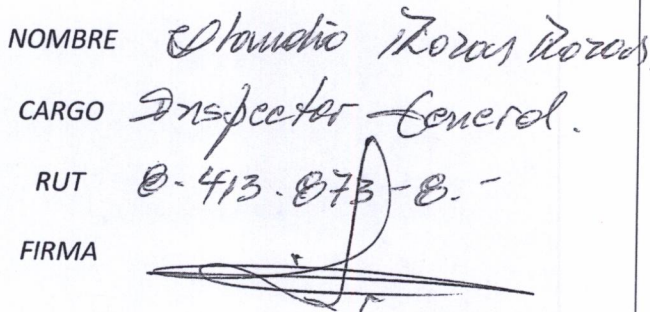 NOMBRE Claudio Rozas Rozas
CARGO Inspector General.
RUT 8-413.873-8.-
FIRMA